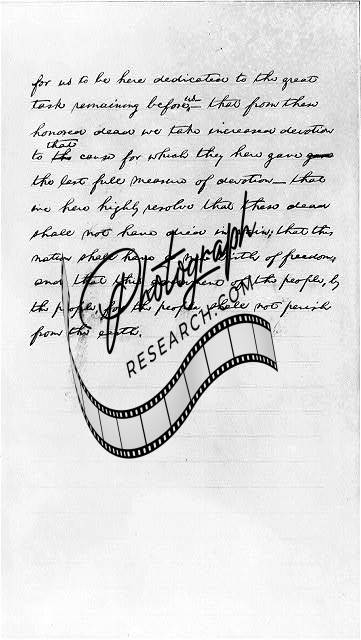 for us to be here dedicated to the great
task remaining before us — that from these
honored dead we take increased devotion
that
to the cause for which they here gave gave
the last full measure of devotion — that
we here highly resolve that these dead
shall not have died in vain; that this
nation shall have a birth of freedom,
and that this of the people, by
the people, for the people, shall not perish
from the earth.
Photograph
RESEARCH.COM